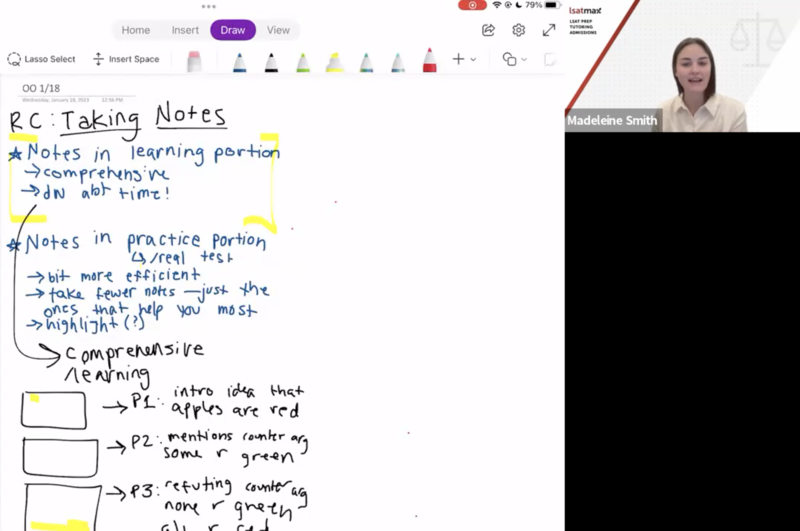 79%
lsatmax
LSAT PREP
TUTORING
ADMISSIONS
Home Insert Draw View
Lasso Select Insert Space
Madeleine Smith
OO 1/18
Wednesday, January 18, 2023 12:56 PM
RC: Taking Notes
★ Notes in learning portion
→ comprehensive
→ dN abt time!
★ Notes in practice portion
↳/real test
→ bit more efficient
→ take fewer notes — just the
ones that help you most
→ highlight (?)
comprehensive
/learning
→ P1: intro idea that
apples are red
→ P2: mentions counter arg
some r green
→ P3: refuting counter ag
none r green
all r red